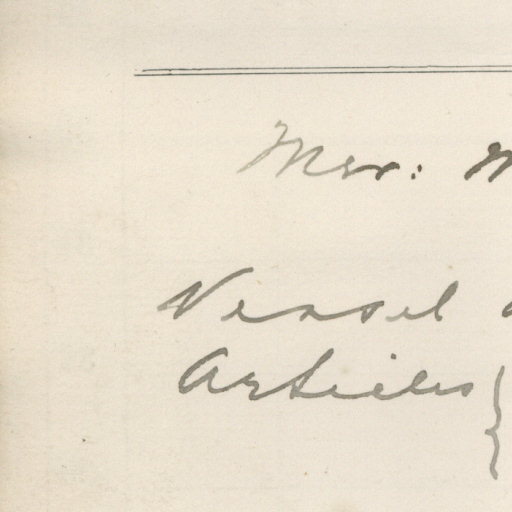 Mer: M
Vessel
Articles {